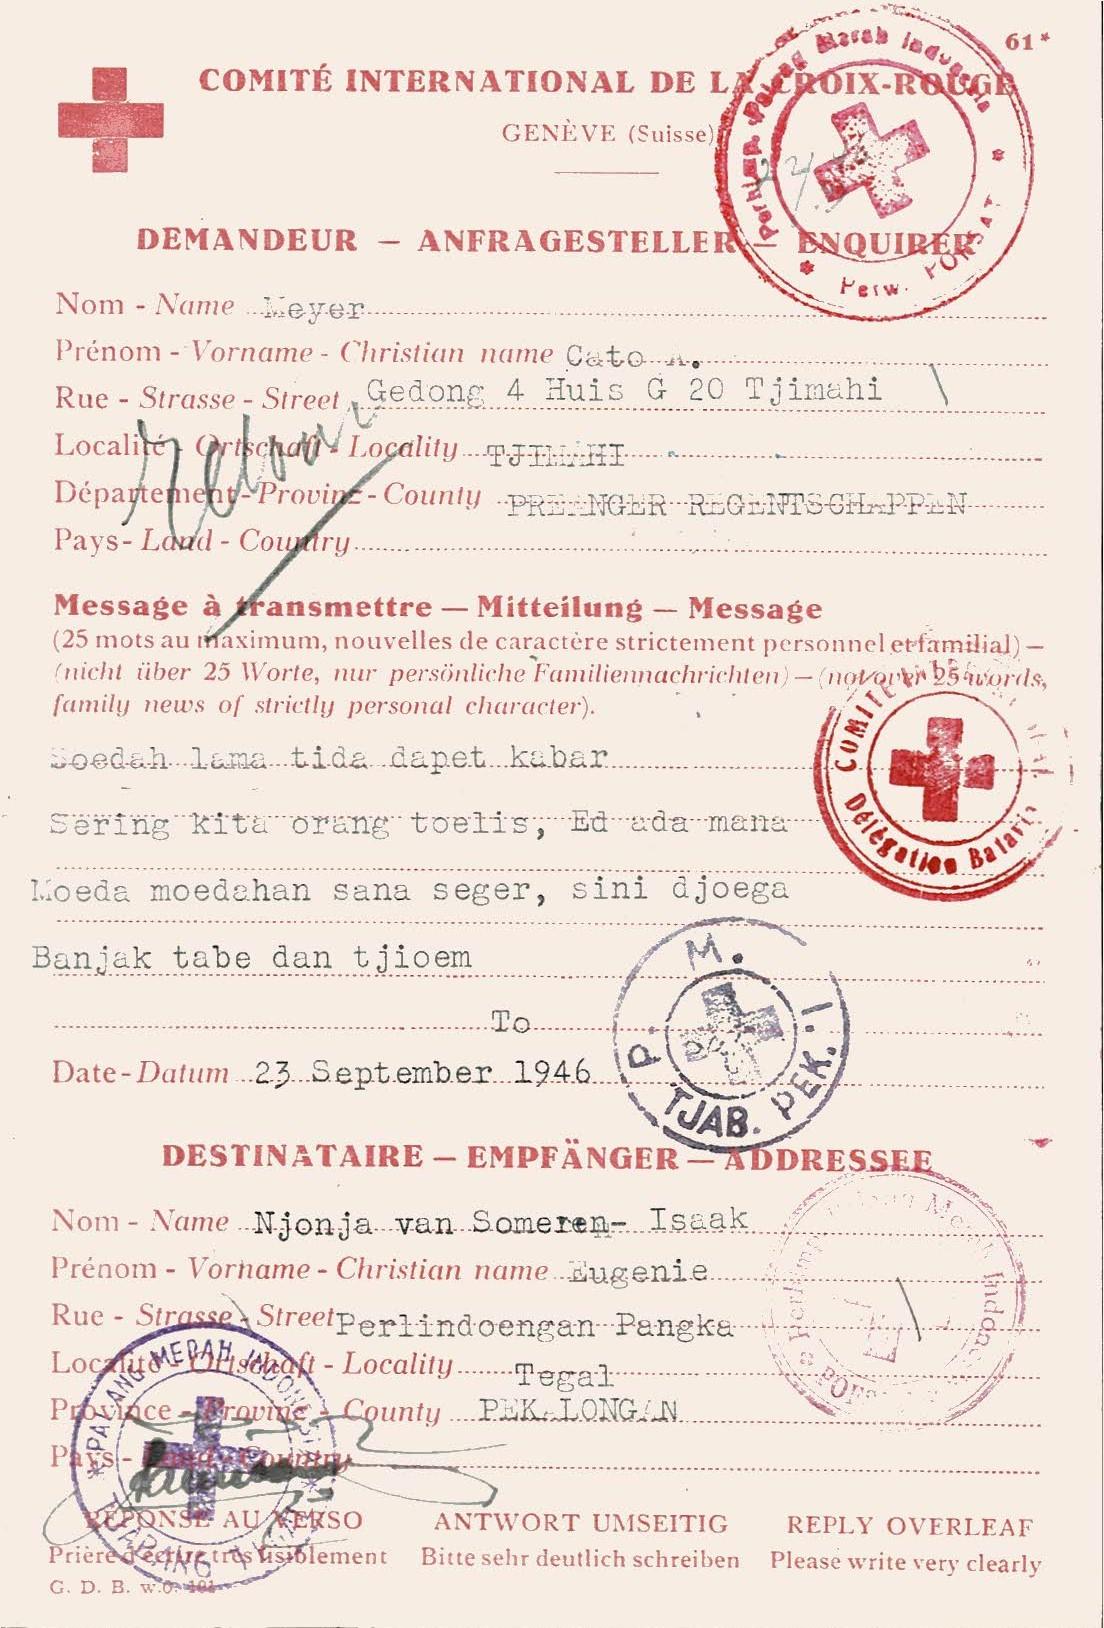 61*
COMITÉ INTERNATIONAL DE LA CROIX-ROUGE
GENÈVE (Suisse)
Perhimp. Palang Merah Indonesia
Perw. POESAT
DEMANDEUR — ANFRAGESTELLER — ENQUIRER
Nom - Name Meyer
Prénom - Vorname - Christian name Cato A.
Rue - Strasse - Street Gedong 4 Huis G 20 Tjimahi
Localité - Ortschaft - Locality TJIMAHI
Département - Provinz - County PREANGER REGENTSCHAPPEN
Pays - Land - Country
Retour
Message à transmettre — Mitteilung — Message
(25 mots au maximum, nouvelles de caractère strictement personnel et familial) —
(nicht über 25 Worte, nur persönliche Familiennachrichten) — (not over 25 words,
family news of strictly personal character).
COMITE
Délégation Batavia
Soedah lama tida dapet kabar
Sering kita orang toelis, Ed ada mana
Moeda moedahan sana seger, sini djoega
Banjak tabe dan tjioem
To
P. M. I.
TJAB. PEK.
Date - Datum 23 September 1946
DESTINATAIRE — EMPFÄNGER — ADDRESSEE
Nom - Name Njonja van Someren- Isaak
Prénom - Vorname - Christian name Eugenie
Rue - Strasse - Street Perlindoengan Pangka
Localité - Ortschaft - Locality Tegal
Province - Provinz - County PEKALONGAN
Pays - Land - Country
PALANG MERAH INDONESIA
TJABANG
RÉPONSE AU VERSO ANTWORT UMSEITIG REPLY OVERLEAF
Prière d'écrire très lisiblement Bitte sehr deutlich schreiben Please write very clearly
G. D. B. w.o. 101